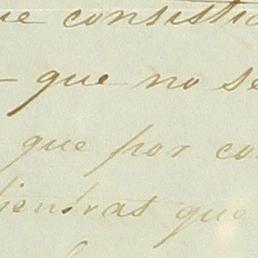 ue consisti
- que no se
que por co
ientras que